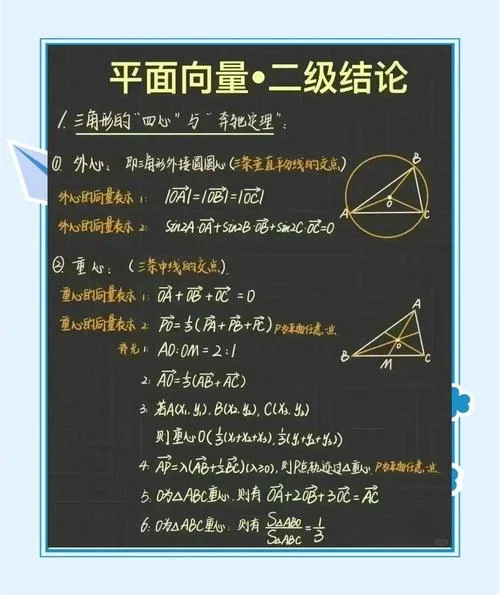 平面向量•二级结论
1. 三角形的"四心"与"奔驰定理":
① 外心: 即三角形外接圆圆心(三条垂直平分线的交点)
外心的向量表示 1: |OA|=|OB|=|OC|
外心的向量表示 2: Sin2A·OA+Sin2B·OB+Sin2C·OC=0
B
A
O
C
② 重心: (三条中线的交点).
重心的向量表示 1: OA+OB+OC=0
重心的向量表示 2: PO=⅓(PA+PB+PC) P为平面任意一点.
补充 1: AO:OM=2:1
2: AO=⅓(AB+AC)
A
O
B
M
C
3: 若A(x₁,y₁), B(x₂,y₂), C(x₃,y₃)
则重心O(⅓(x₁+x₂+x₃), ⅓(y₁+y₂+y₃))
4: AP=λ(AB+½BC)(λ≥0), 则P点轨迹过△重心, P为平面任意一点.
5: O为△ABC重心, 则有 OA+2OB+3OC=AC
6: O为△ABC重心, 则有 S△ABO/S△ABC=1/3